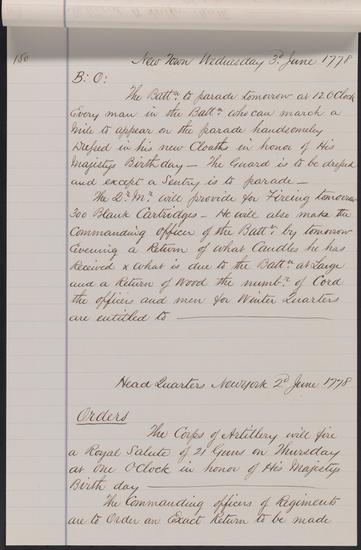 150
New Town Wednesday 3d. June 1778
B: O:
The Battn. to parade tomorrow at 12 O Clock
Every man in the Battn. who can march a
Mile to appear on the parade handsomely
Dressed in his new Cloaths in honor of His
Majestys Birthday — The Guard is to be dressed
and except a Sentry is to parade —
The Q. Mr. will provide for Fireing tomorrow
300 Blank Cartridges — He will also make the
Commanding Officer of the Battn. by tomorrow
Evening a Return of what Candles he has
Received & what is due to the Battn. at Large
and a Return of Wood the numbr. of Cord
the officers and men for Winter Quarters
are entitled to
Head Quarters New York 2d June 1778
Orders
The Corps of Artillery will fire
a Royal Salute of 21 Guns on Thursday
at one O'Clock in honor of His Majestys
Birth day
The Commanding officers of Regiments
are to Order an Exact Return to be made